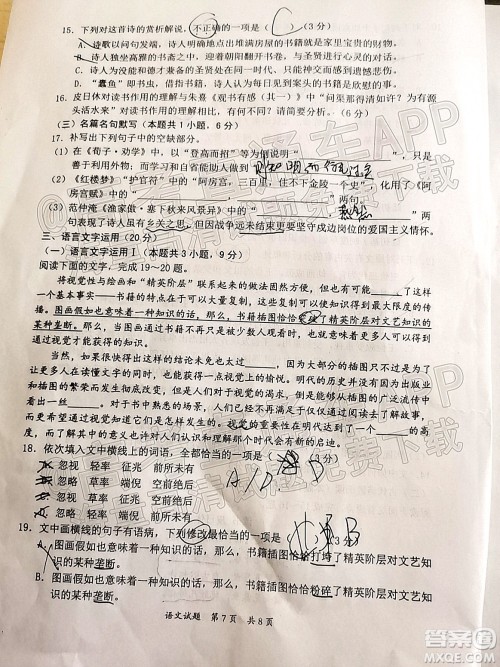 15. 下列对这首诗的赏析解说，不正确的一项是（ C ）（3分）
A. 诗歌以问句发端，诗人明确地点出堆满房屋的书籍就是家里宝贵的财物。
B. 诗人独坐高雅的书斋之中，迎着朝阳翻开书卷，与圣贤进行无声的交流。
C. 诗人为没能和德才兼备的圣贤处在同一时代，只能神交而感到遗憾悲伤。
D. “蠹鱼”即书虫，此借指诗人，诗人认为每日见到案头的书籍其乐无比。
16. 皮日休对读书作用的理解与朱熹《观书有感（其一）》中“问渠那得清如许？为有源
头活水来”对读书作用的理解有何不同？（6分）
（三）名篇名句默写（本题共1小题，6分）
17. 补写出下列句子中的空缺部分。
（1）在《荀子·劝学》中，以“登高而招”等为例说明“ ”，只是
善于利用外物；而学习和自省能助人做到“ 知明而行无过
（2）《红楼梦》“护官符”中的“阿房宫，三百里，住不下金陵一个史”，化用了《阿
房宫赋》中的“ ， ”两句。
（3）范仲淹《渔家傲·塞下秋来风景异》中的“ ， ”两
句表现了诗人有乡关之思，但因战争远未结束更要坚守戍边岗位的爱国主义情怀。
三、语言文字运用（20分）
（一）语言文字运用Ⅰ（本题共3小题，9分）
阅读下面的文字，完成19～20题。
将视觉性与绘画和“精英阶层”联系起来的做法固然方便，但也有可能 了这样
一个基本事实——书籍的特点就在于能够大量复制，这种复制可以使知识得到最大限度的传
播。图画假如也意味着一种知识的话，那么，书籍插图恰恰 了精英阶层对文艺知识的
某种垄断。那么，当图画通过书籍不再只是被少数人观看时，也就意味着有更多的人以视觉
的方式获得了知识。
当然，如果就这样得出最后的结论未免也太过 ，因为大部分的插图只不过是为了
让更多人在读懂文字的同时，也能获得一点视觉上的愉悦。明代的情形不仅因为出版业
和插图的繁荣而显得 ，也是因为，人们对于视觉的关注从各个方面都可以显现
出一丝 。对于书中熟悉的场景，人们需要的不再是通过阅读插图去了解故事，
而更希望通过视觉获得新的认知和快感。视觉的重要性在明代达到了一个 的高
度，而这种重要性的意义还体现在对人们认识知识和认识世界方式的改变上。
18. 依次填入文中横线上的词语，全都恰当的一项是（ ）（3分）
A. 忽视 轻率 征兆 前所未有
B. 忽略 轻率 端倪 空前绝后
C. 忽视 草率 征兆 空前绝后
D. 忽略 草率 端倪 前所未有
19. 文中画横线的句子有语病，下列修改最恰当的一项是 B 3分）
A. 图画假如也意味着一种知识的话，那么，书籍插图恰恰打垮了精英阶层对文艺知
识的某种垄断。
B. 图画假如也意味着一种知识的话，那么，书籍插图恰恰粉碎了精英阶层对文艺知
识的某种垄断。
语文试题 第7页 共8页
答案圈
MXQE.COM